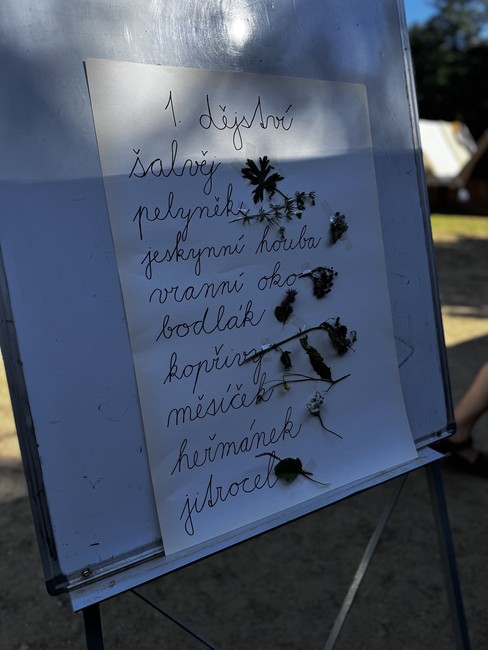 1. dějství
šalvěj
pelyněk
jeskynní houba
vranní oko
bodlák
kopřivy
měsíček
heřmánek
jitrocel